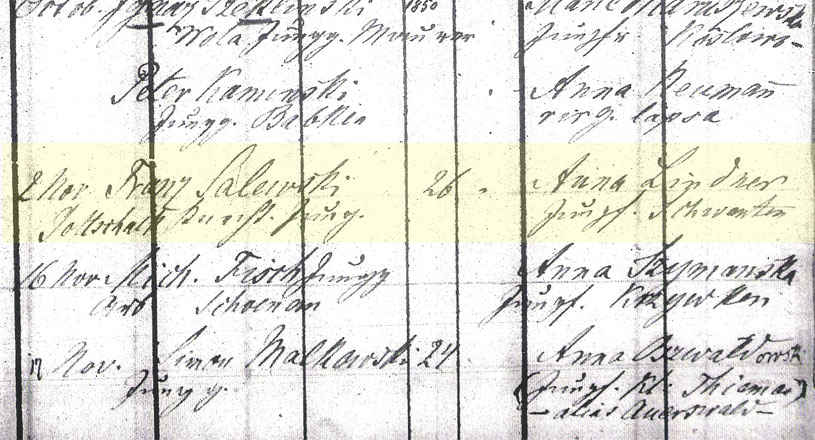 Octob. Szeklinski 1850
Wola Jungg. Maurer Jungfr.
Peter Kaminski Anna Neumann
Jungg. Babken virg. lapsa
2 Nov Franz Salewski 26 Anna Lindner
Knecht. Jung. Jungf. Schwenten
16 Nov. Mich. Fisch Jungg Anna Szymanska
Arb Schoenau Jungf.
17 Nov. Simon Malkowski 24 Anna
Jungg. (Jungf. Kl. Thiemau)
— alias Auerswald —